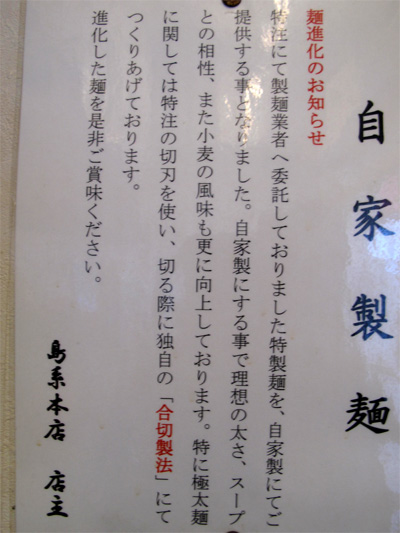 自家製麺
麺進化のお知らせ
特注にて製麺業者へ委託しておりました特製麺を、自家製にてご
提供する事となりました。自家製にする事で理想の太さ、スープ
との相性、また小麦の風味も更に向上しております。特に極太麺
に関しては特注の切刃を使い、切る際に独自の「合切製法」にて
つくりあげております。
進化した麺を是非ご賞味ください。
島系本店 店主